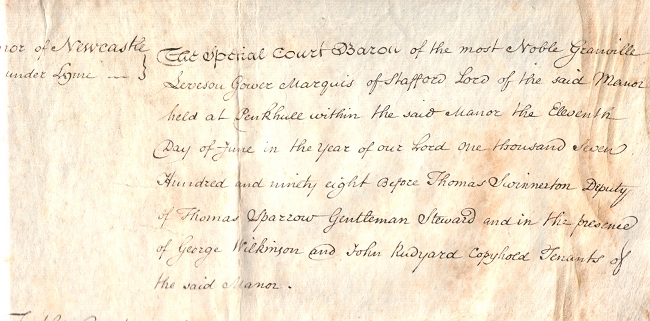 nor of Newcastle
under Lyme
The Special Court Baron of the most Noble Granville
Leveson Gower Marquis of Stafford Lord of the said Manor
held at Penkhull within the said Manor the Eleventh
Day of June in the Year of our Lord One thousand Seven
Hundred and ninety eight Before Thomas Swinnerton Deputy
of Thomas Sparrow Gentleman Steward and in the presence
of George Wilkinson and John Rudyard Copyhold Tenants of
the said Manor.